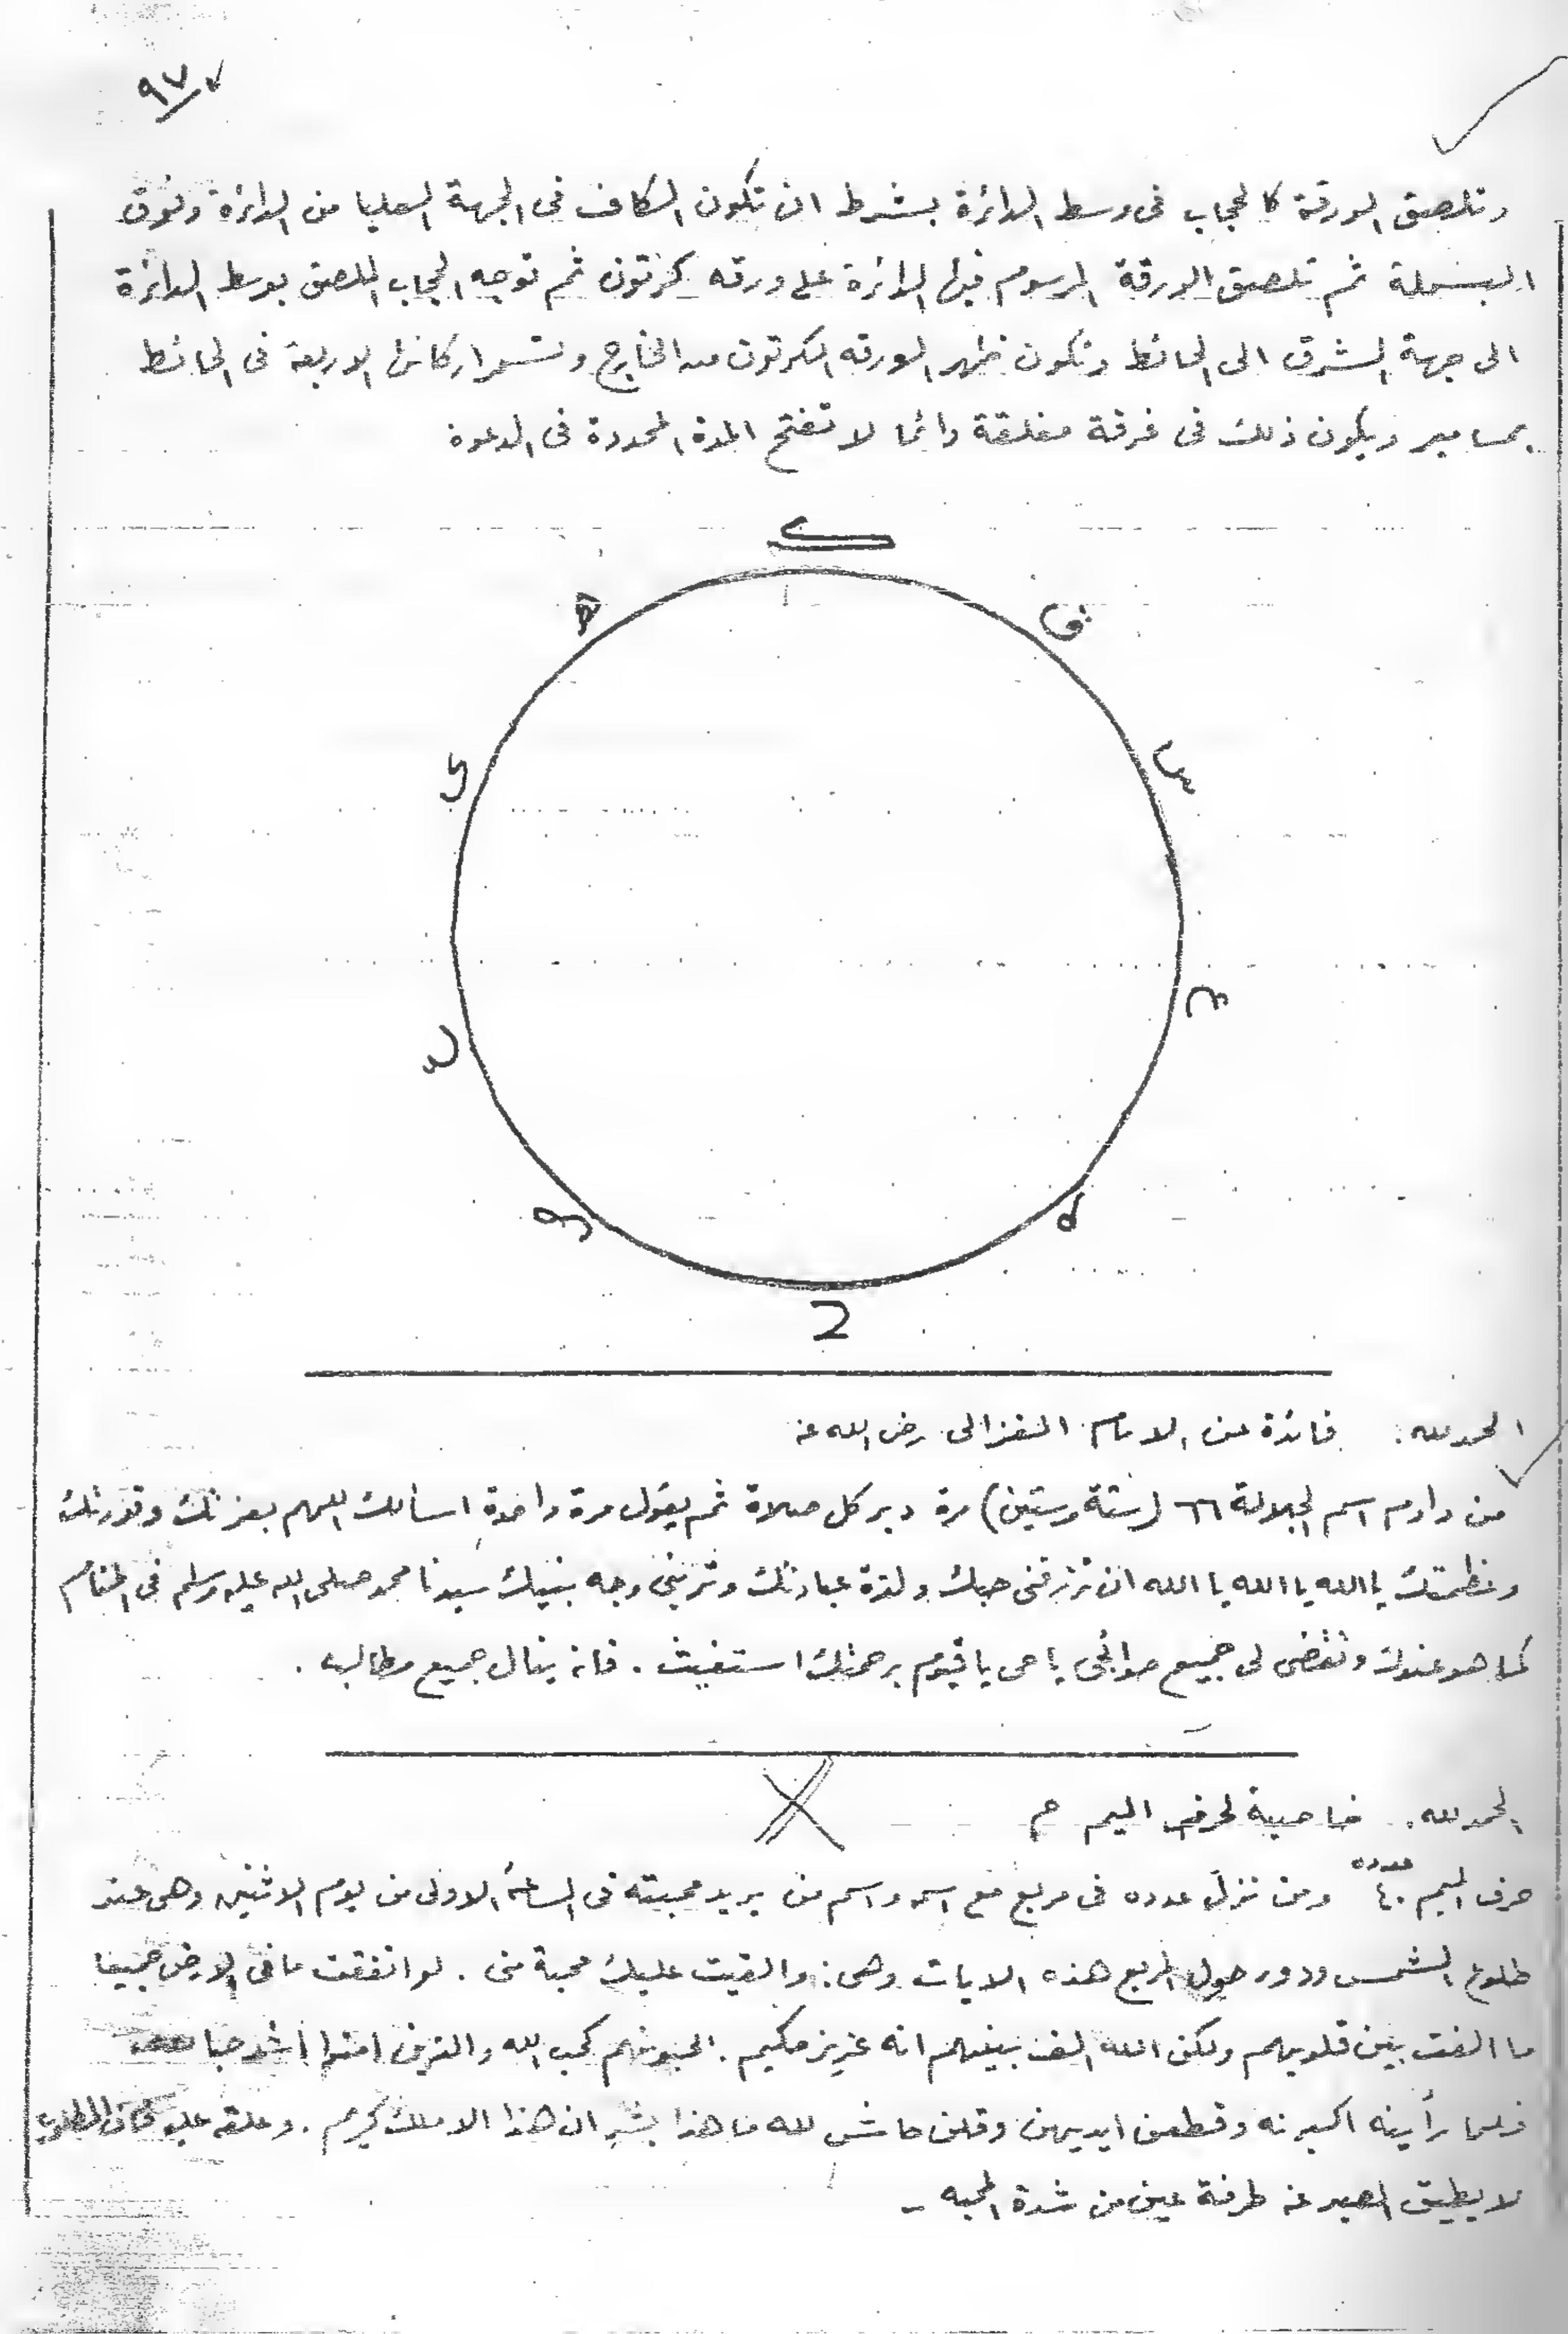 ٩٧
وتلصق الورقة كالحجاب فى وسط الدائرة بشرط ان تكون الكاف فى الجهة العليا من الدائرة وفوق
البسملة ثم تلصق الورقة المرسوم فيها الدائرة على ورقه كرتون ثم توجه الحجاب الملصق بوسط الدائرة
الى جهة الشرق الى الحائط وتكون ظهر الورقه الكرتون من الخارج وتسمر اركانها الاربعة فى الحائط
بمسامير ويكون ذلك فى غرفة مغلقة دائما لا تفتح المدة المحددة فى الدعوة
ك
ق
ه
س
ى
ع
ع
م
ص
ح
الحمد لله. فائدة عن الامام الغزالى رضى الله عنه
من داوم اسم الجلالة ٦٦ (ستة وستين) مرة دبر كل صلاة ثم يقول مرة واحدة اسألك اللهم بعزتك وقدرتك
وعظمتك يا الله يا الله يا الله ان ترزقنى حبك ولذة عبادتك وترينى وجه نبيك سيدنا محمد صلى الله عليه وسلم فى المنام
كما هو عندك وتقضى لى جميع حوائجى يا حى يا قيوم برحمتك استغيث . فانه ينال جميع مطالبه .
الحمد لله. خاصية لحرف الميم م
حرف الميم عدده ٤٠ ومن نزل عدده فى مربع مع اسمه واسم من يريد محبته فى الساعة الاولى من يوم الاثنين وهى عند
طلوع الشمس ودور حول المربع هذه الايات وهى: والقيت عليك محبة منى . لو انفقت ما فى الارض جميعا
ما الفت بين قلوبهم ولكن الله الف بينهم انه عزيز حكيم . يحبونهم كحب الله والذين امنوا أشد حبا لله
فلما رأينه اكبرنه وقطعن ايديهن وقلن حاش لله ما هذا بشرا ان هذا الا ملك كريم . وعلقه عليه فان المطلوب
لا يطيق الصبر عنه طرفة عين من شدة المحبه -